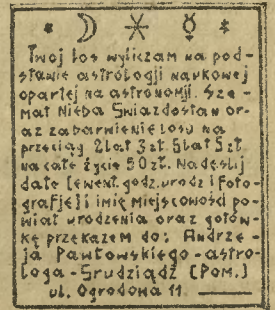 Twoj los wyliczam na pod-
stawie astrologji naukowej
opartej na astronomji. Sze-
mat Nieba Gwiazdostan or-
az zabarwienie losu na
przeciąg 2lat 3zł 5lat 5zł
na całe życie 50zł. Nadeślij
datę (ewent. godz. urodz i foto-
grafję) i imię Miejscowości po-
wiat urodzenia oraz gotów-
kę przekazem do: Andrze-
ja Pawłowskiego - astro-
loga - Grudziądz (Pom.)
ul. Ogrodowa 11